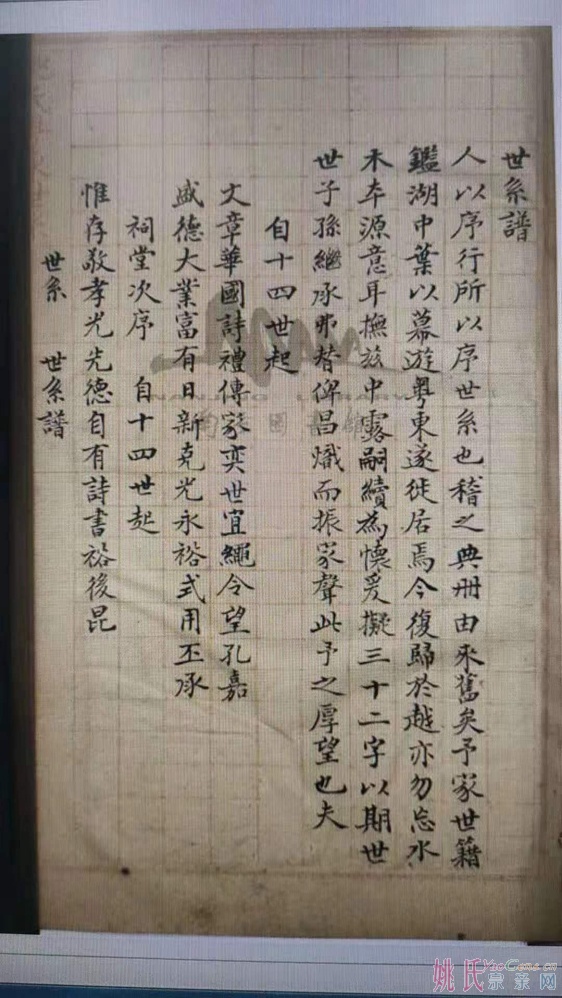 世系譜
人以序行所以序世系也稽之典冊由來舊矣予家世籍
鑑湖中葉以幕遊粵東遂徙居焉今復歸於越亦勿忘水
木本源意耳撫茲中露嗣續為懷爰擬三十二字以期世
世子孫繼承弗替俾昌熾而振家聲此予之厚望也夫
自十四世起
文章華國詩禮傳家奕世宜繩令望孔嘉
盛德大業富有日新克光永裕式用丕承
祠堂次序 自十四世起
惟存敬孝光先德自有詩書裕後昆
世系 世系譜
姚氏宗亲网